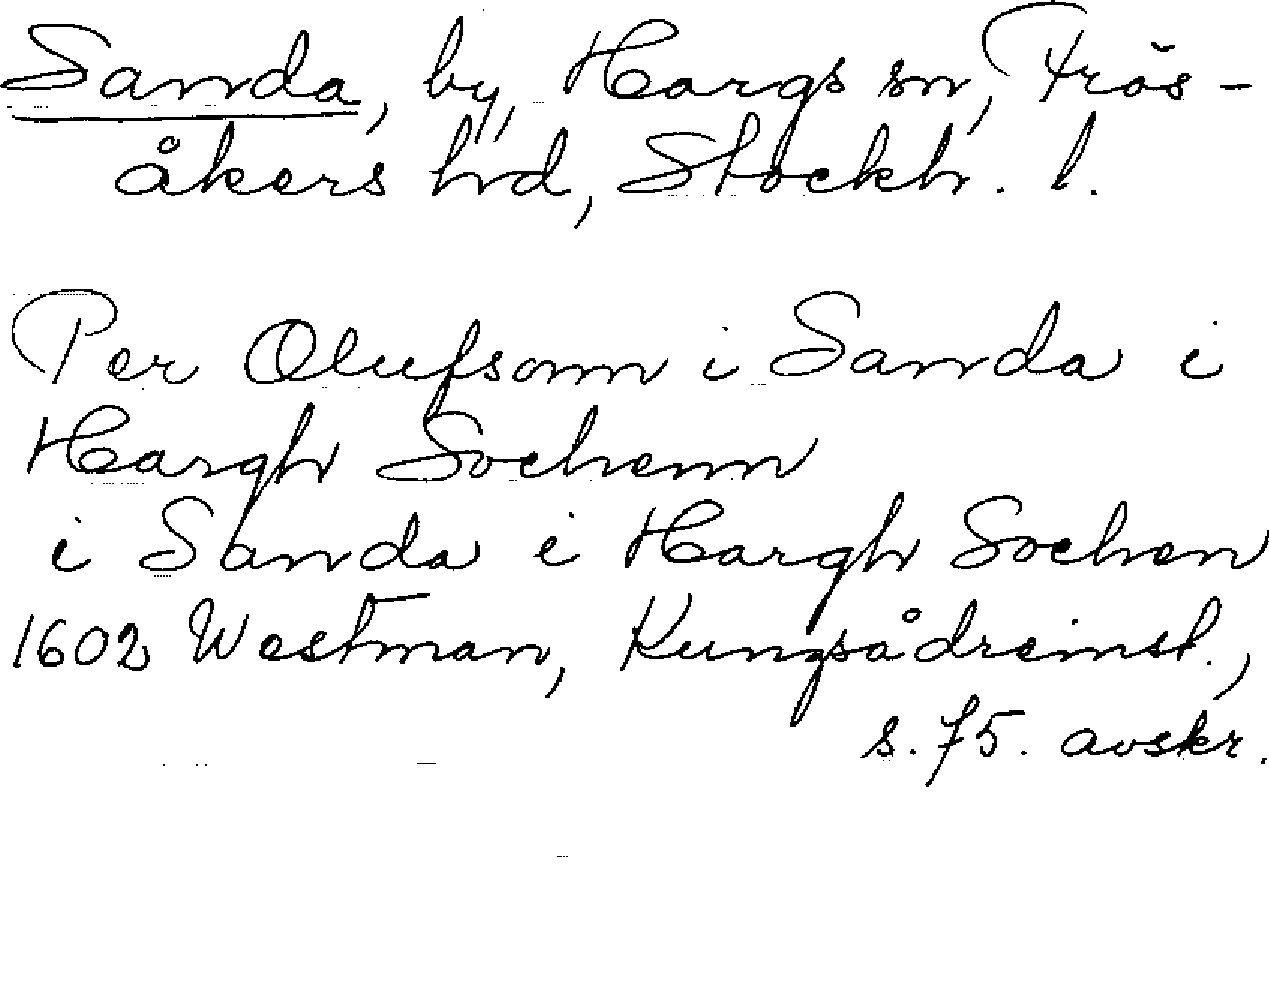 Sanda, by, Hargs sn, Frös-
åkers hd, Stockh. l.
Per Olufsonn i Sanda i
Hargh Sochenn
i Sanda i Hargh Sochen
1602 Westman, Kungsådreinst.,
s. 75. avskr.